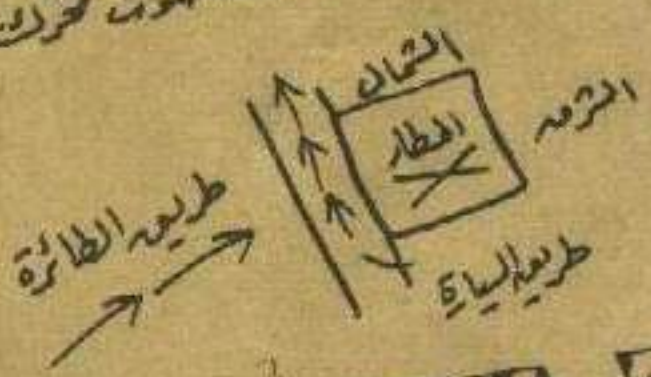 الشمال
الشرق
المطار
طريق الطائرة
طريق السيارة